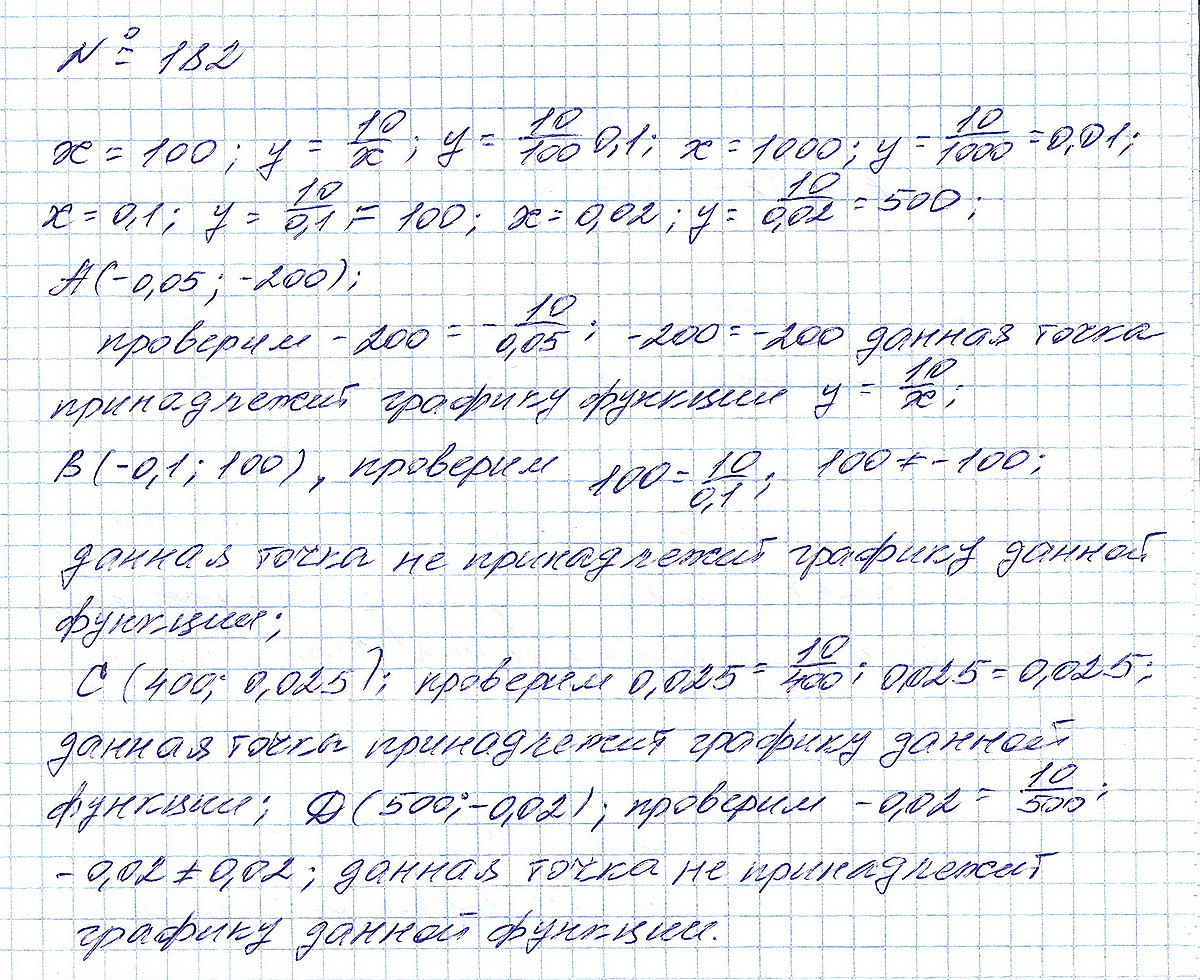 № 182
x = 100; y = 10/x; y = 10/100 0,1; x = 1000; y = 10/1000 = 0,01;
x = 0,1; y = 10/0,1 = 100; x = 0,02; y = 10/0,02 = 500;
A(-0,05; -200);
проверим -200 = -10/0,05; -200 = -200 данная точка
принадлежит графику функции y = 10/x;
B(-0,1; 100), проверим 100 = 10/0,1; 100 ≠ -100;
данная точка не принадлежит графику данной
функции;
C (400; 0,025); проверим 0,025 = 10/400; 0,025 = 0,025;
данная точка принадлежит графику данной
функции; D(500; -0,02); проверим -0,02 = 10/500;
-0,02 ≠ 0,02; данная точка не принадлежит
графику данной функции.